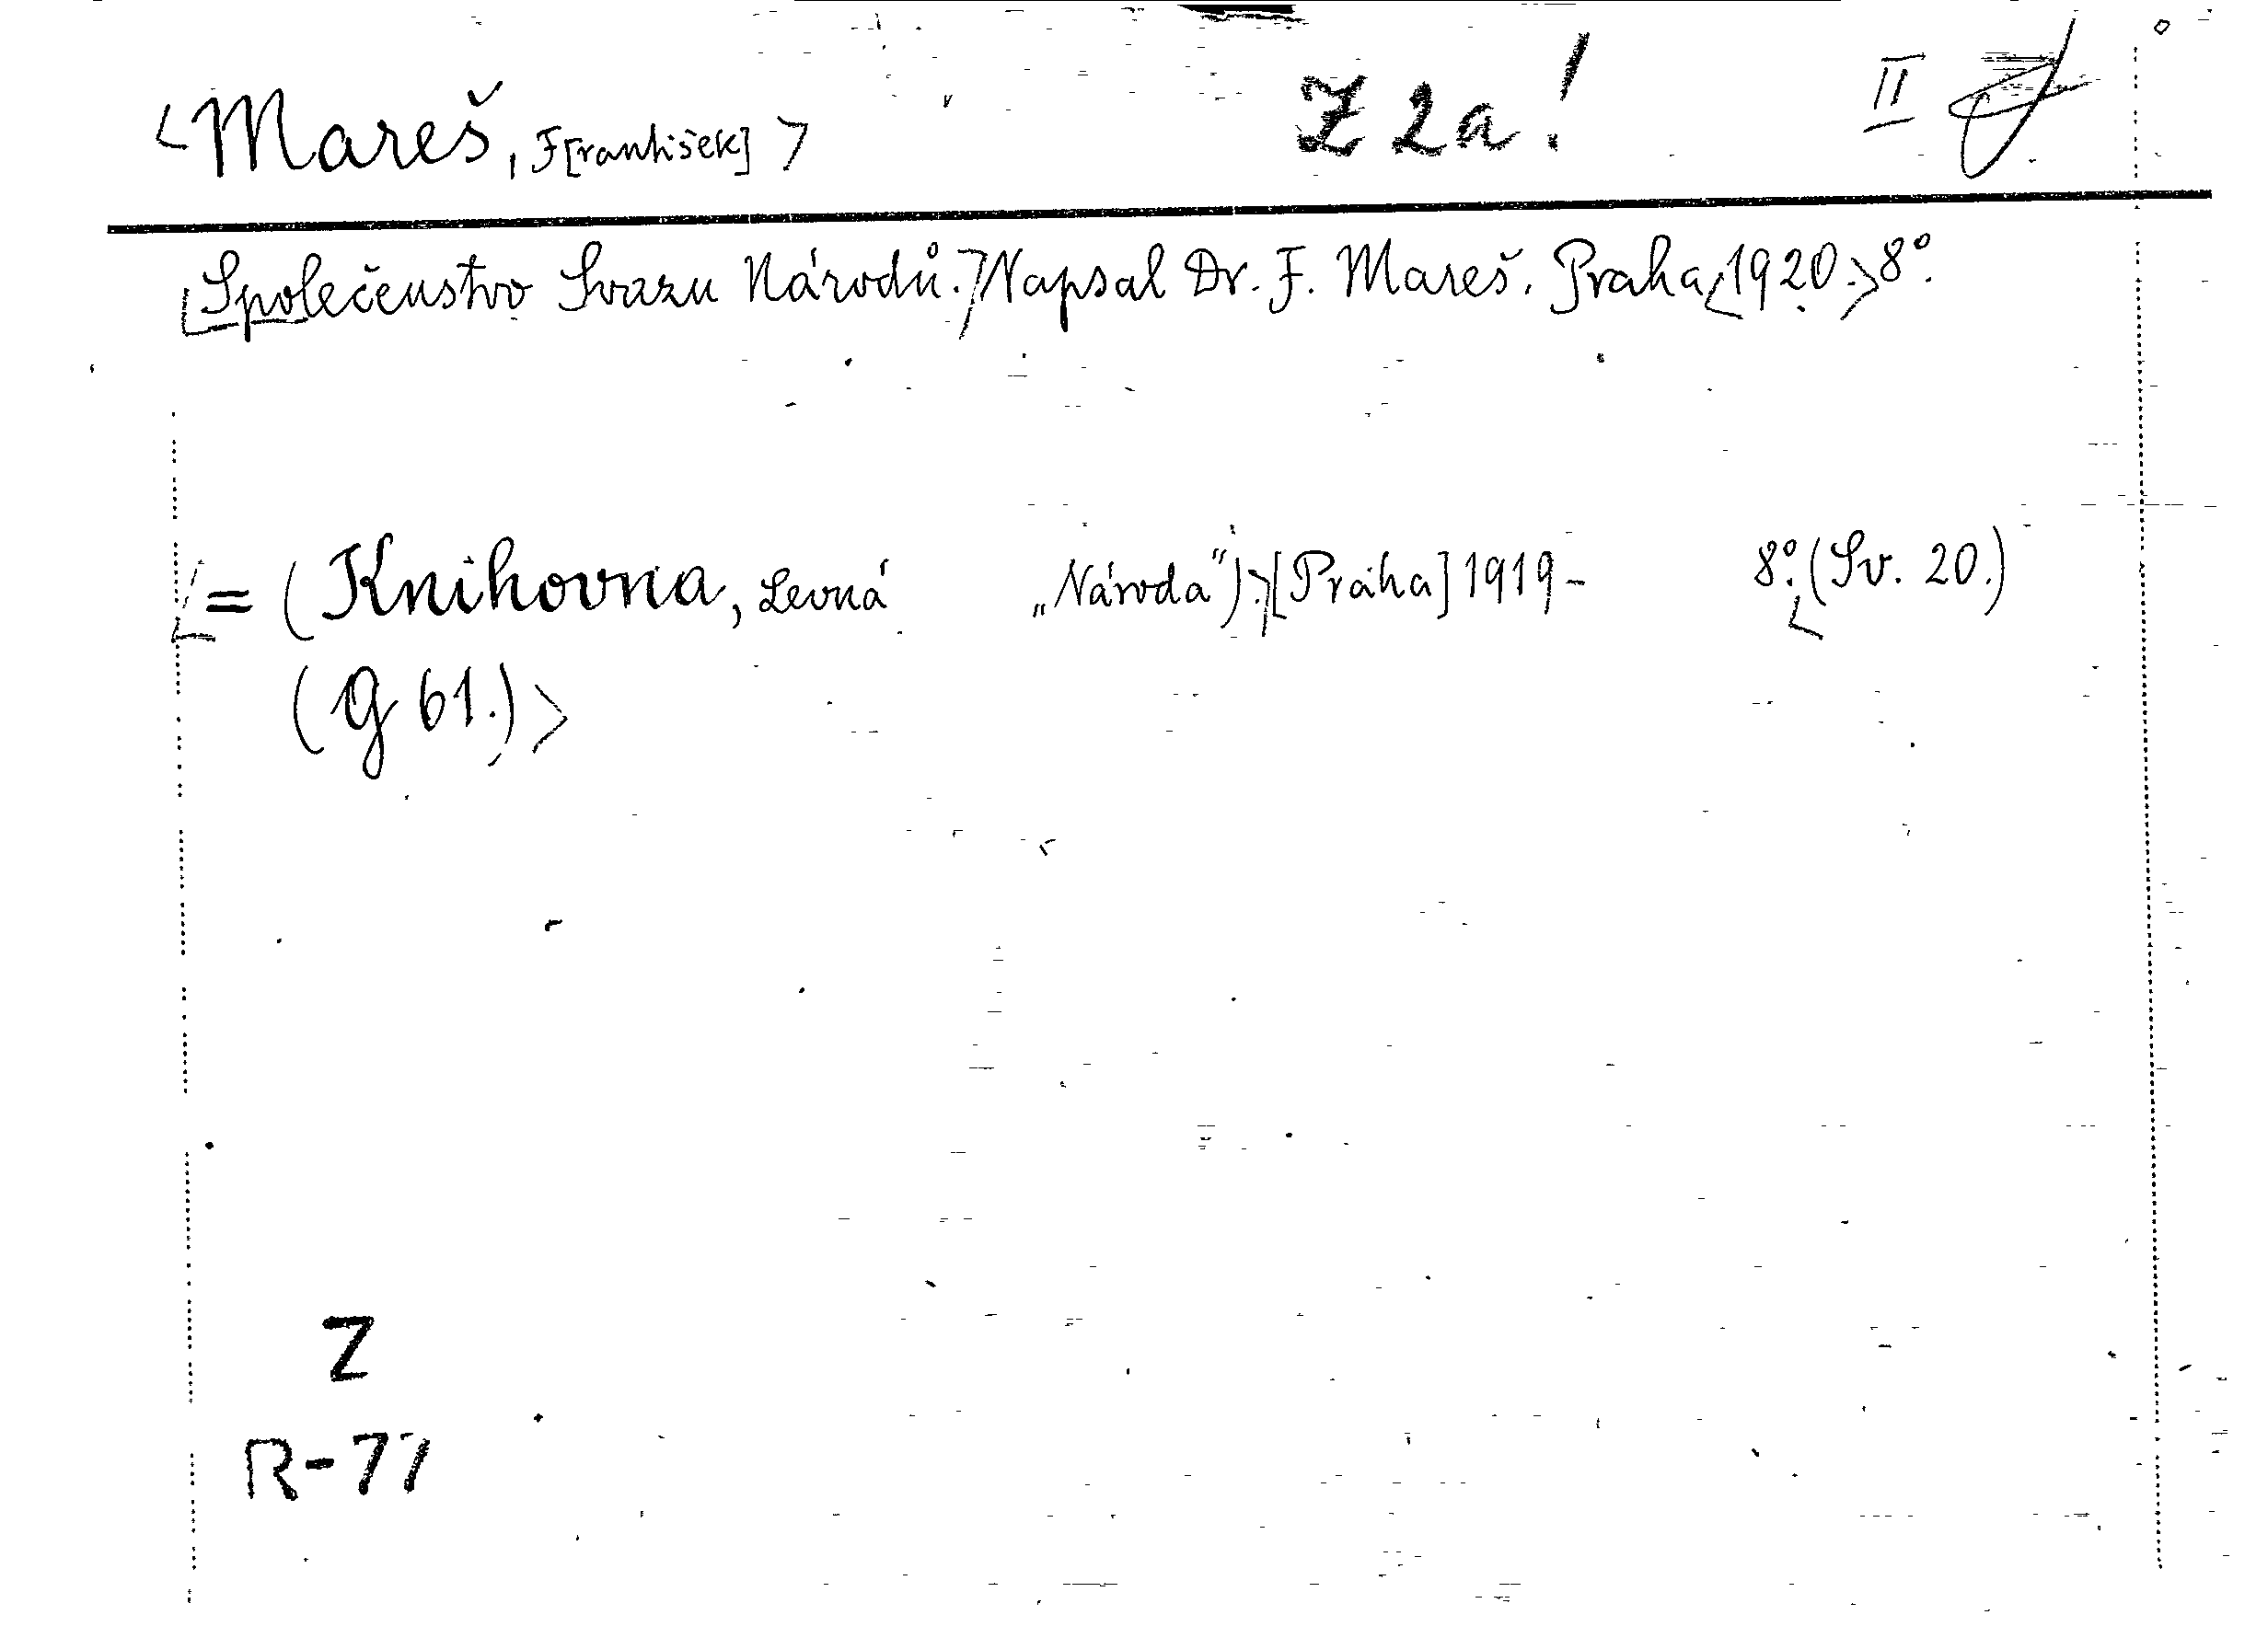 <Mareš, F[rantišek]> Z 2a! II
[Společenstvo Svazu Národů.] Napsal Dr. F. Mareš. Praha <1920.> 8°.
<= (Knihovna, Levná „Národa“).> [Praha] 1919- 8°. <(Sv. 20.)
(G 61.)>
Z
R-77